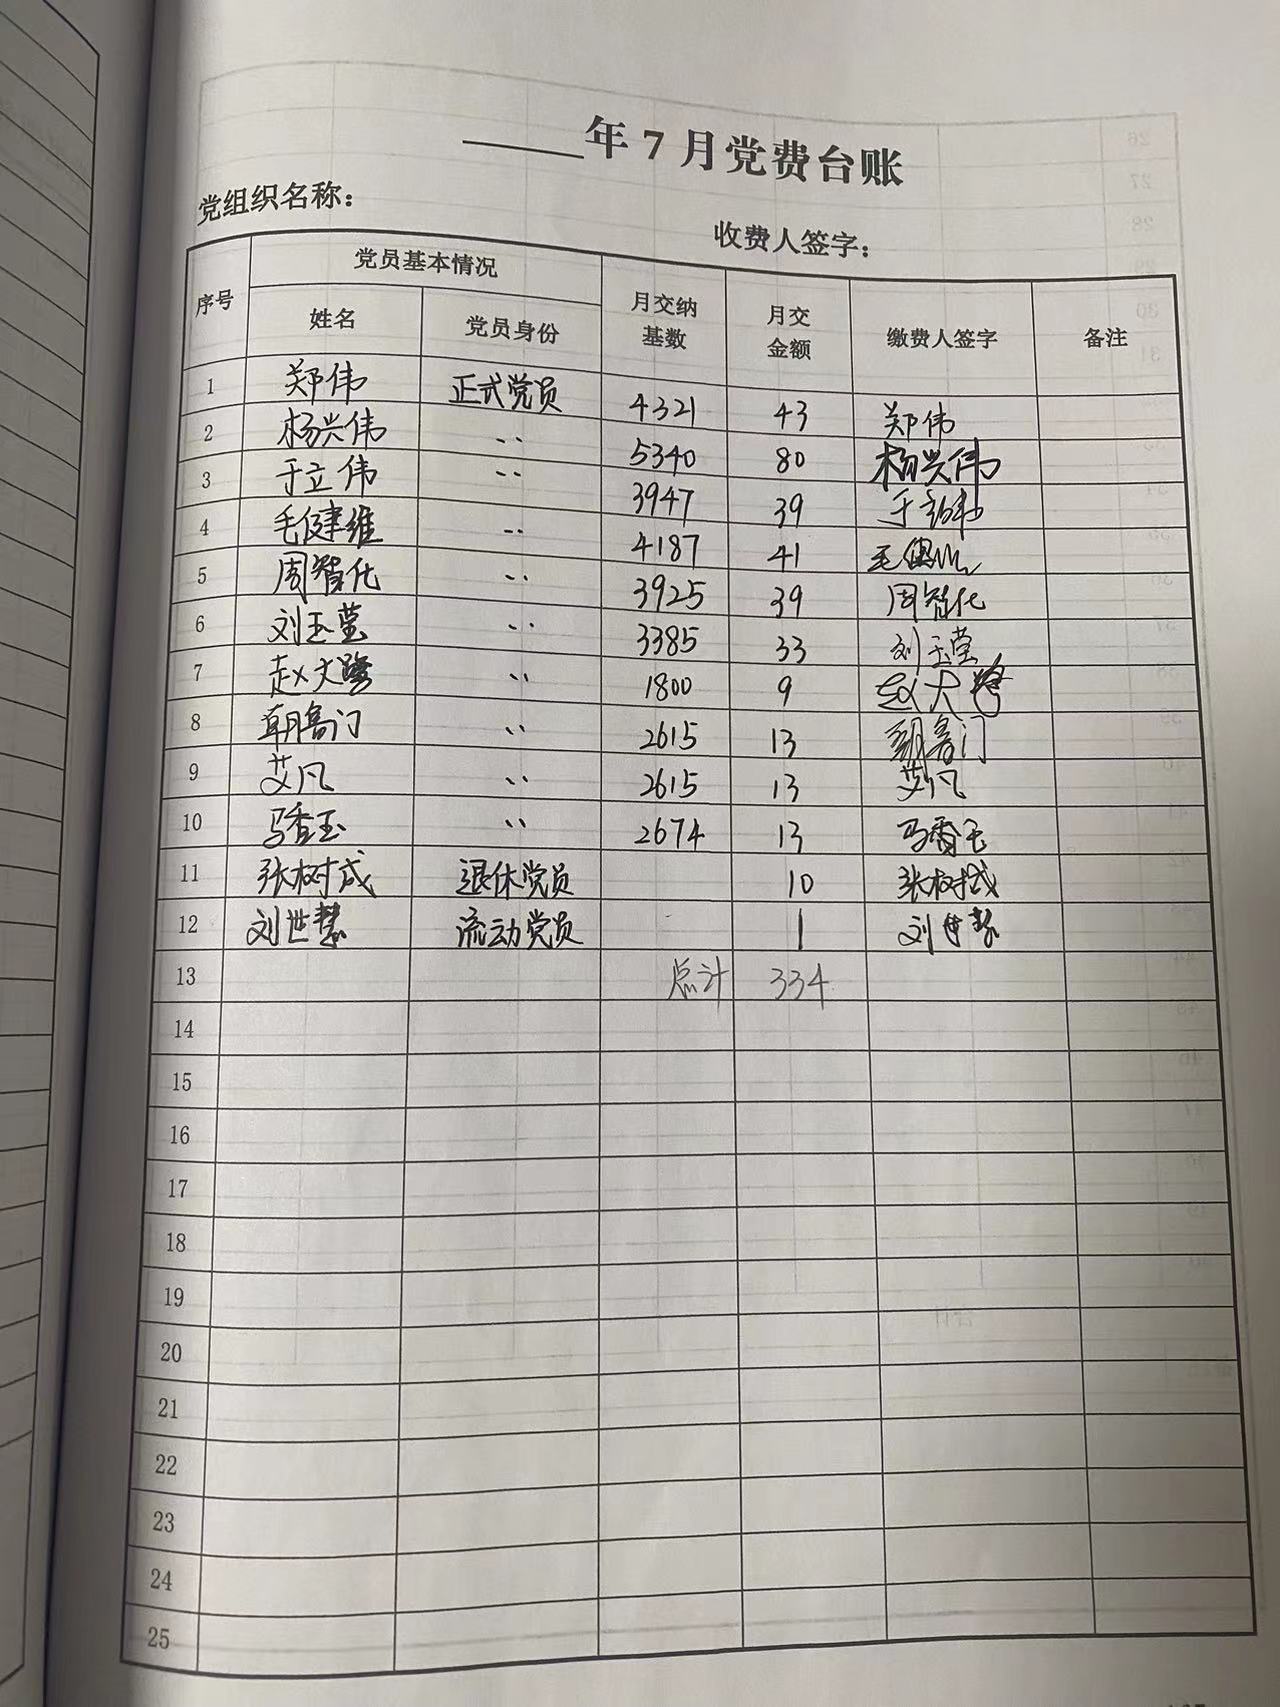 年 7 月党费台账
党组织名称：
收费人签字：
序号 党员基本情况 月交纳基数 月交金额 缴费人签字 备注
姓名 党员身份
1 郑伟 正式党员 4321 43 郑伟
2 杨兴伟 〃 5340 80 杨兴伟
3 于立伟 〃 3947 39 于立伟
4 毛健维 〃 4187 41 毛健
5 周智化 〃 3925 39 周智化
6 刘玉莹 〃 3385 33 刘玉莹
7 赵大 〃 1800 9 赵大
8 朝鲁门 〃 2615 13 朝鲁门
9 艾凡 〃 2615 13 艾凡
10 马香玉 〃 2674 13 马香玉
11 张树成 退休党员 10 张树成
12 刘世慧 流动党员 1 刘世慧
13 总计 334
14
15
16
17
18
19
20
21
22
23
24
25